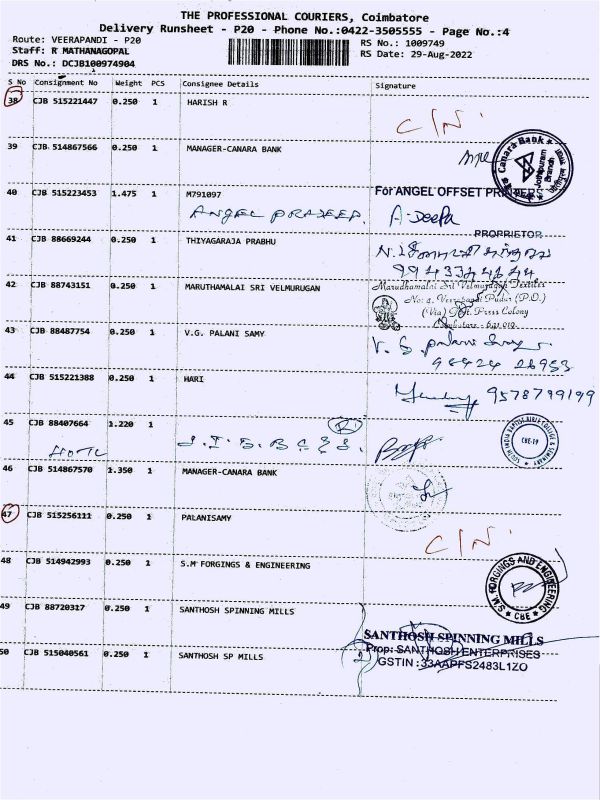 THE PROFESSIONAL COURIERS, Coimbatore
Delivery Runsheet - P20 - Phone No.:0422-3505555 - Page No.:4
Route: VEERAPANDI - P20
RS No.: 1009749
Staff: R MATHANAGOPAL
RS Date: 29-Aug-2022
DRS No.: DCJB100974904
S No Consignment No Weight PCS Consignee Details Signature
38 CJB 515221447 0.250 1 HARISH R
C/N
39 CJB 514867566 0.250 1 MANAGER-CANARA BANK
Canara Bank
Branch
40 CJB 515223453 1.475 1 M791097
For ANGEL OFFSET PRINTERS
ANGEL PRADEEP. A-Deepa
PROPRIETOR
41 CJB 88669244 0.250 1 THIYAGARAJA PRABHU
42 CJB 88743151 0.250 1 MARUTHAMALAI SRI VELMURUGAN
Marudhamalai Sri Velmurugan Textiles
No: 4, Veerapandi Pudur (P.O.)
(Via) Govt. Press Colony
Coimbatore - 641 019.
43 CJB 88487754 0.250 1 V.G. PALANI SAMY
V. G palani Samy
44 CJB 515221388 0.250 1 HARI
9578799199
45 CJB 88407664 1.220 1
CBE-19
46 CJB 514867570 1.350 1 MANAGER-CANARA BANK
47 CJB 515256111 0.250 1 PALANISAMY
C/N
48 CJB 514942993 0.250 1 S.M FORGINGS & ENGINEERING
S.M. FORGINGS AND ENGINEERING
* CBE *
49 CJB 88720317 0.250 1 SANTHOSH SPINNING MILLS
50 CJB 515040561 0.250 1 SANTHOSH SP MILLS
SANTHOSH SPINNING MILLS
Prop: SANTHOSH ENTERPRISES
GSTIN : 33AAPFS2483L1ZO